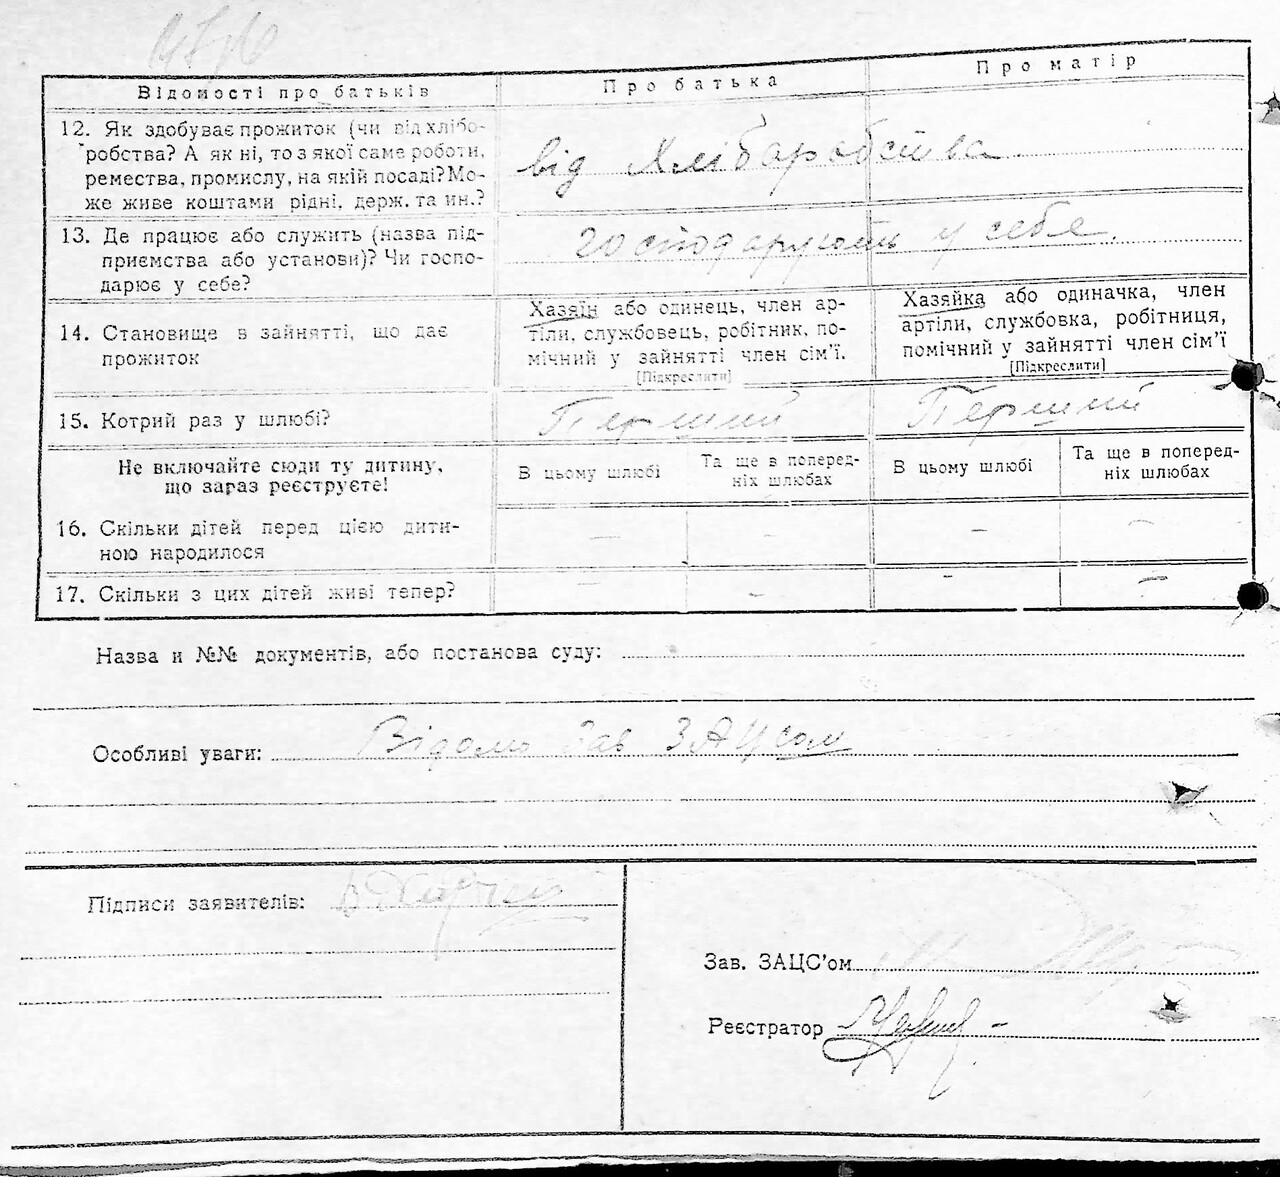 Відомості про батьків
Про батька
Про матір
12. Як здобуває прожиток (чи від хлібо-
робства? А як ні, то з якої саме роботи,
ремества, промислу, на якій посаді? Мо-
же живе коштами рідні, держ. та ин.?
від Хлібаробства
13. Де працює або служить (назва під-
приємства або установи)? Чи госпо-
дарює у себе?
господарують у себе.
14. Становище в зайнятті, що дає
прожиток
Хазяїн або одинець, член ар-
тіли, службовець, робітник, по-
мічний у зайнятті член сім'ї.
[Підкреслити]
Хазяйка або одиначка, член
артіли, службовка, робітниця,
помічний у зайнятті член сім'ї
[Підкреслити]
15. Котрий раз у шлюбі?
Перший
Перший
Не включайте сюди ту дитину,
що зараз реєструєте!
В цьому шлюбі
Та ще в поперед-
ніх шлюбах
В цьому шлюбі
Та ще в поперед-
ніх шлюбах
16. Скільки дітей перед цією дити-
ною народилося
— — — —
17. Скільки з цих дітей живі тепер?
— — — —
Назва и №№ документів, або постанова суду:
Особливі уваги: Відомо Зав ЗАЦсом
Підписи заявителів:
Зав. ЗАЦС'ом
Реєстратор